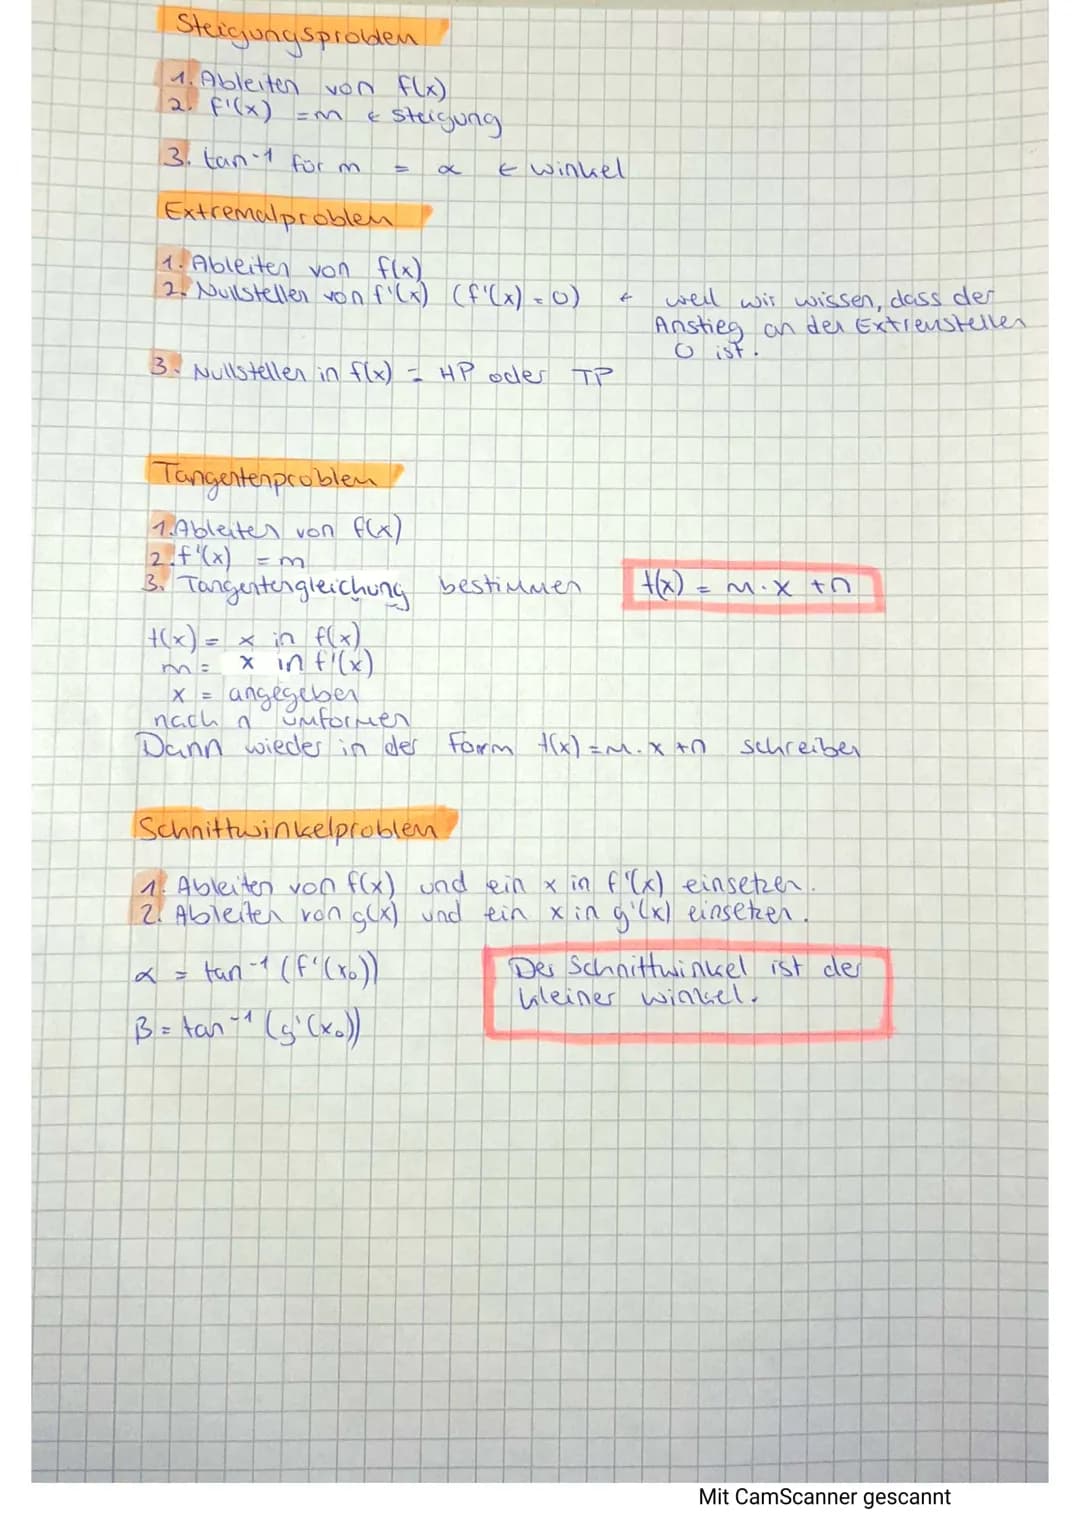 Steigungsproblem
1. Ableiten von f(x)
2. f'(x) = m ← Steigung
3. tan⁻¹ für m = α ← Winkel
Extremalproblem
1. Ableiten von f(x)
2. Nullstellen von f'(x) (f'(x) = 0) ← weil wir wissen, dass der
Anstieg an den Extremstellen
0 ist.
3. Nullstellen in f(x) = HP oder TP
Tangentenproblem
1. Ableiten von f(x)
2. f'(x) = m
3. Tangentengleichung bestimmen t(x) = m · x + n
t(x) = x in f(x)
m = x in f'(x)
x = angegeben
nach n umformen
Dann wieder in der Form t(x) = m · x + n schreiben
Schnittwinkelproblem
1. Ableiten von f(x) und ein x in f'(x) einsetzen.
2. Ableiten von g(x) und ein x in g'(x) einsetzen.
α = tan⁻¹ (f'(x₀))
Der Schnittwinkel ist der
kleiner Winkel.
β = tan⁻¹ (g'(x₀))
Mit CamScanner gescannt